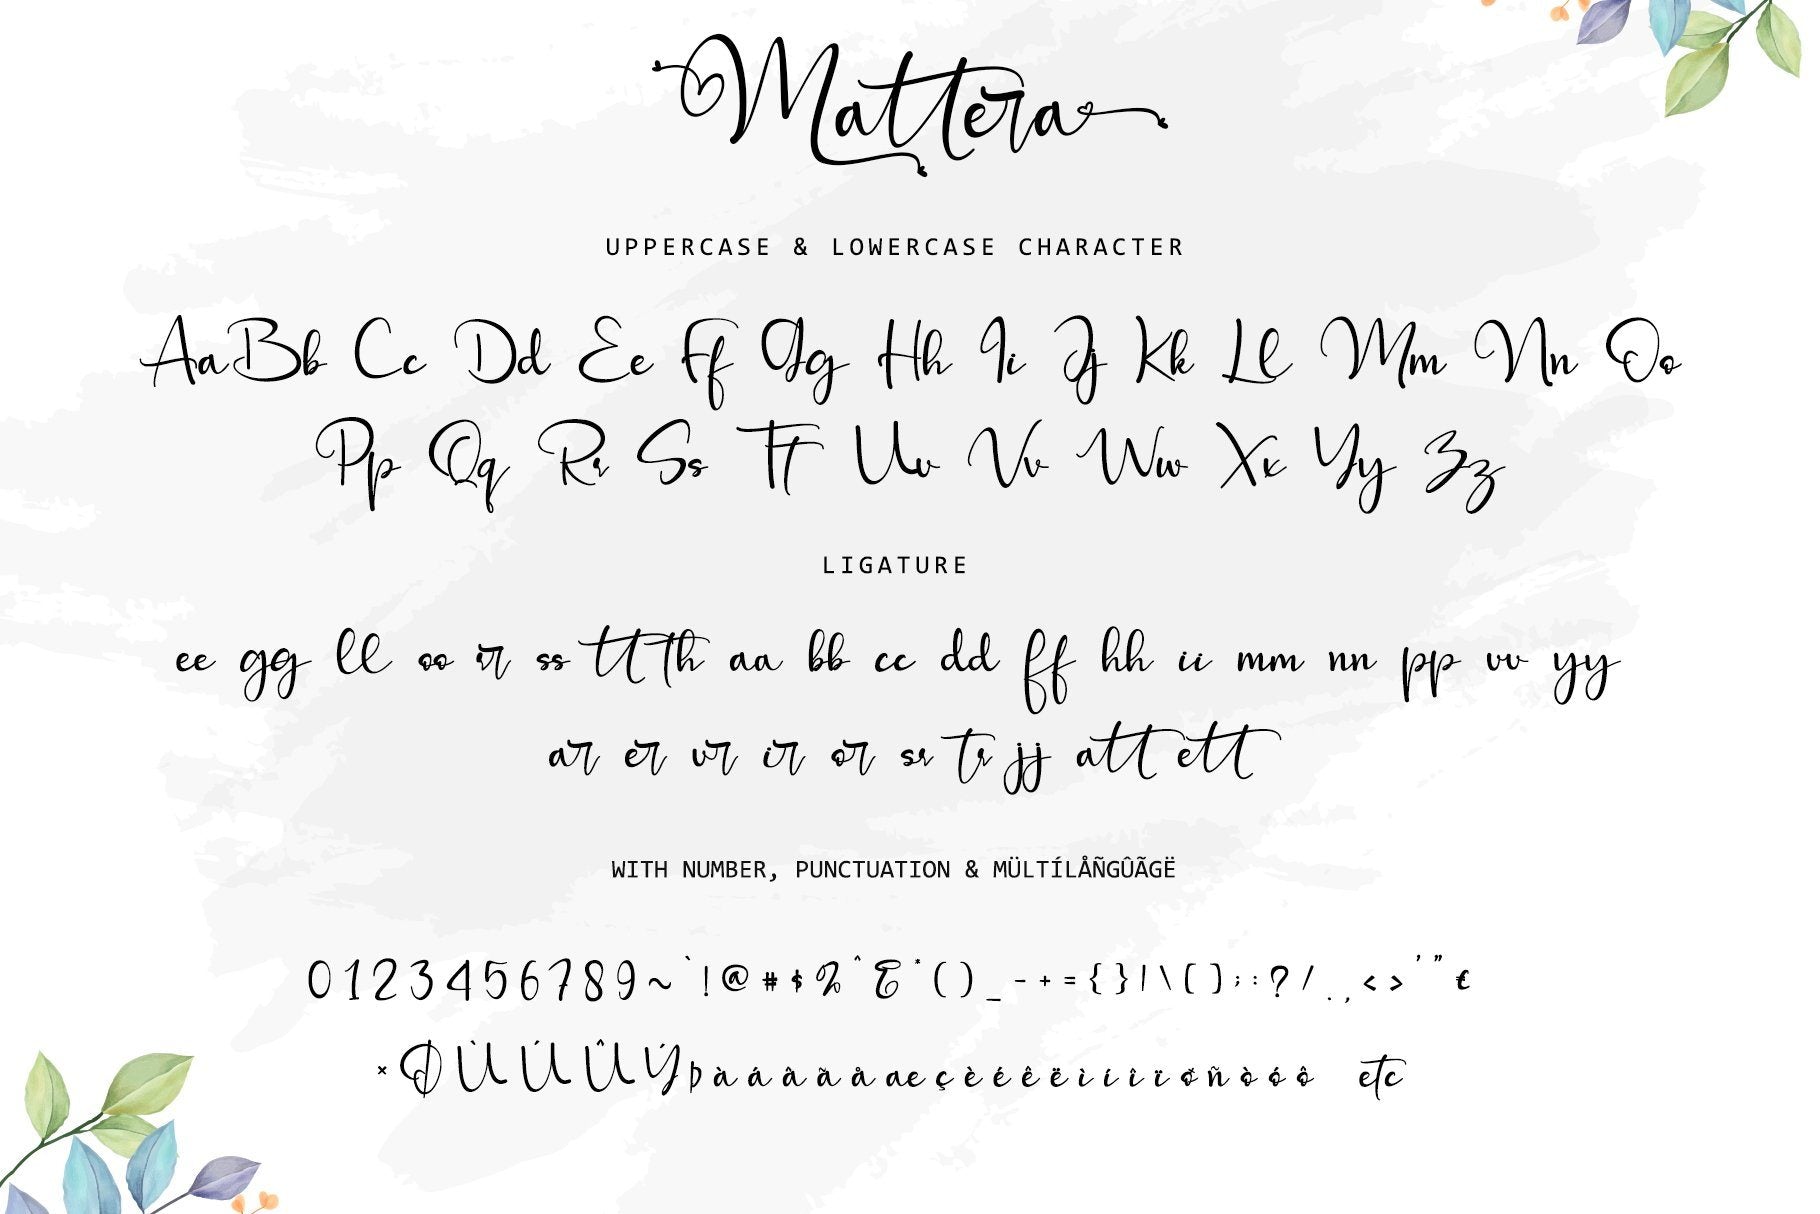 Mattera
UPPERCASE & LOWERCASE CHARACTER
Aa Bb Cc Dd Ee Ff Gg Hh Ii Jj Kk Ll Mm Nn Oo
Pp Qq Rr Ss Tt Uu Vv Ww Xx Yy Zz
LIGATURE
ee gg ll oo rr ss tt th aa bb cc dd ff hh ii mm nn pp uu yy
ar er ur ir or sr tr jj att ett
WITH NUMBER, PUNCTUATION & MÜLTÍLÅÑGÛÃGË
0 1 2 3 4 5 6 7 8 9 ~ ` ! @ # $ % ^ & * ( ) _ - + = { } | \ [ ] ; : ? / . , < > ' " €
× Ø Ù Ú Û Ý þ à á â ã å æ ç è é ê ë ì í î ï ø ñ ò ó ô etc